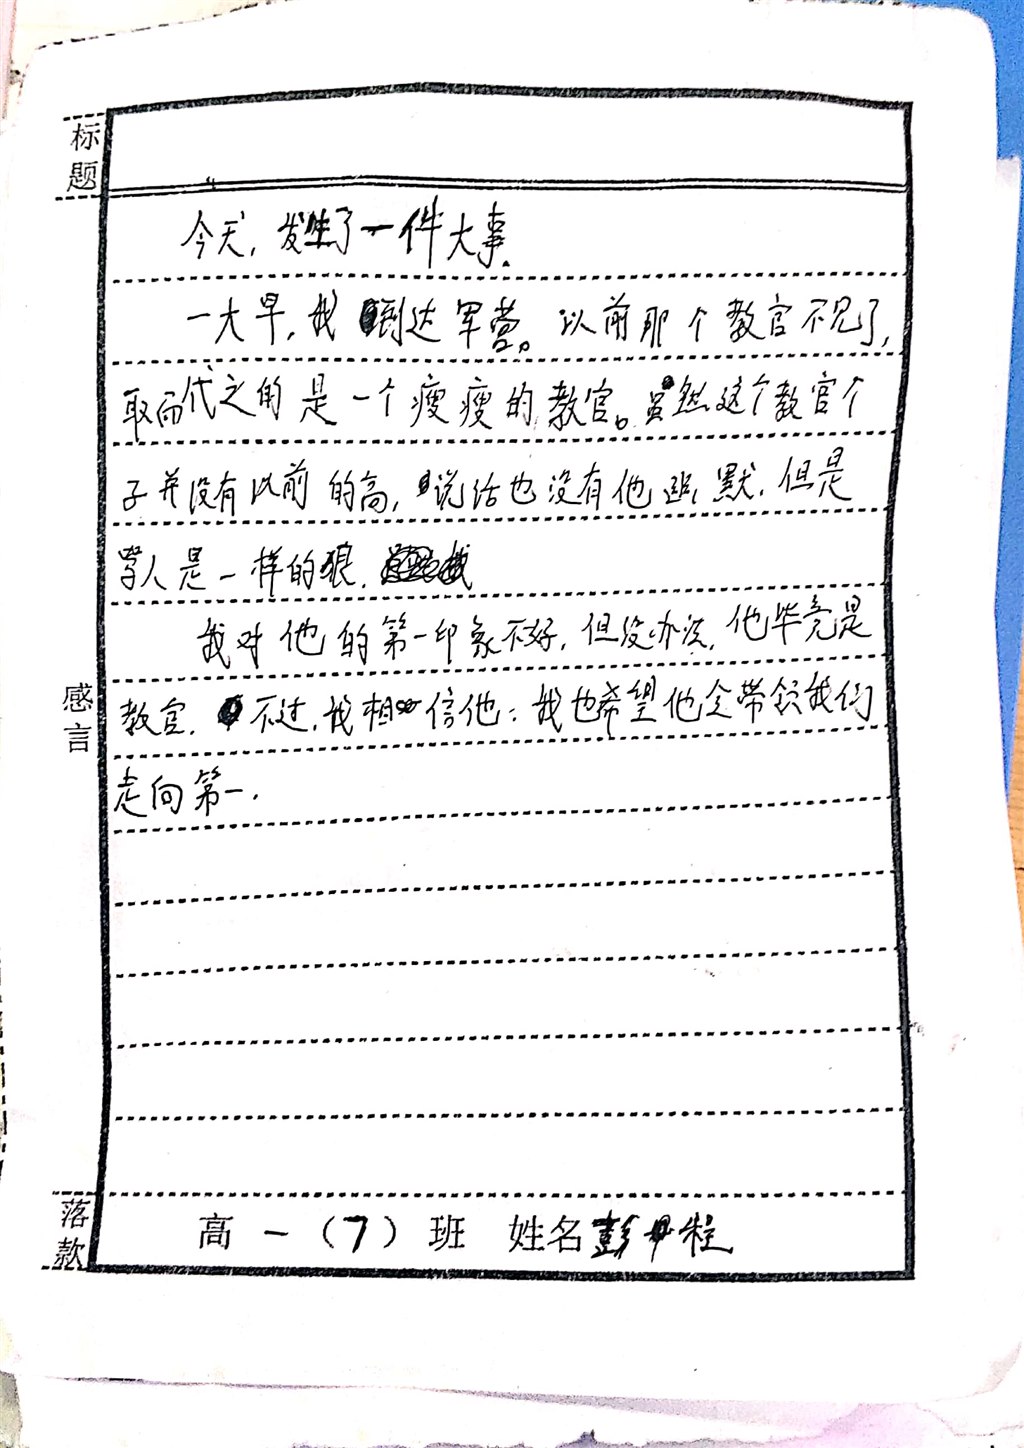 标题
今天,发生了一件大事.
一大早,我到达军营。以前那个教官不见了,
取而代之的是一个瘦瘦的教官。虽然这个教官个
子并没有以前的高,说话也没有他幽默.但是
人是一样的狠.
我对他的第一印象不好,但没办法,他毕竟是
教官.不过,我相信他:我也希望他会带领我们
走向第一.
感言
落款
高一(7)班 姓名彭